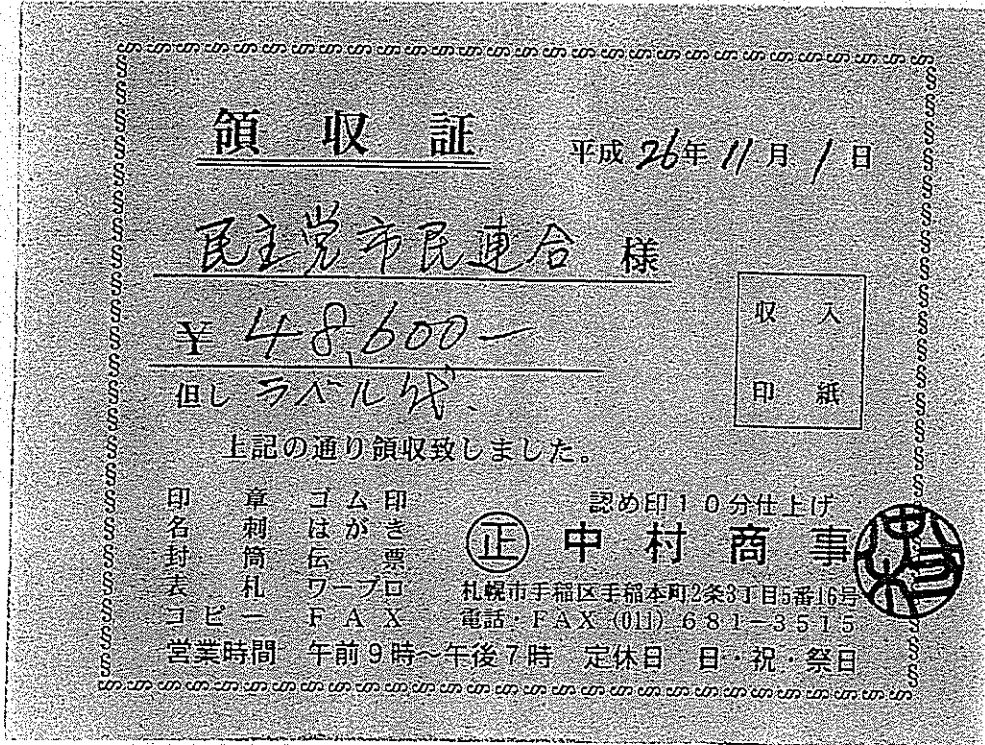 領収証 平成26年11月1日
民主党市民連合 様
¥48,600-
但し ラベル代、
収入
印紙
上記の通り領収致しました。
印章 ゴム印
名刺 はがき
封筒 伝票
表札 ワープロ
コピー FAX
認め印10分仕上げ
㊣ 中村商事
札幌市手稲区手稲本町2条3丁目5番16号
電話・FAX (011) 681-3515
営業時間 午前9時~午後7時 定休日 日・祝・祭日